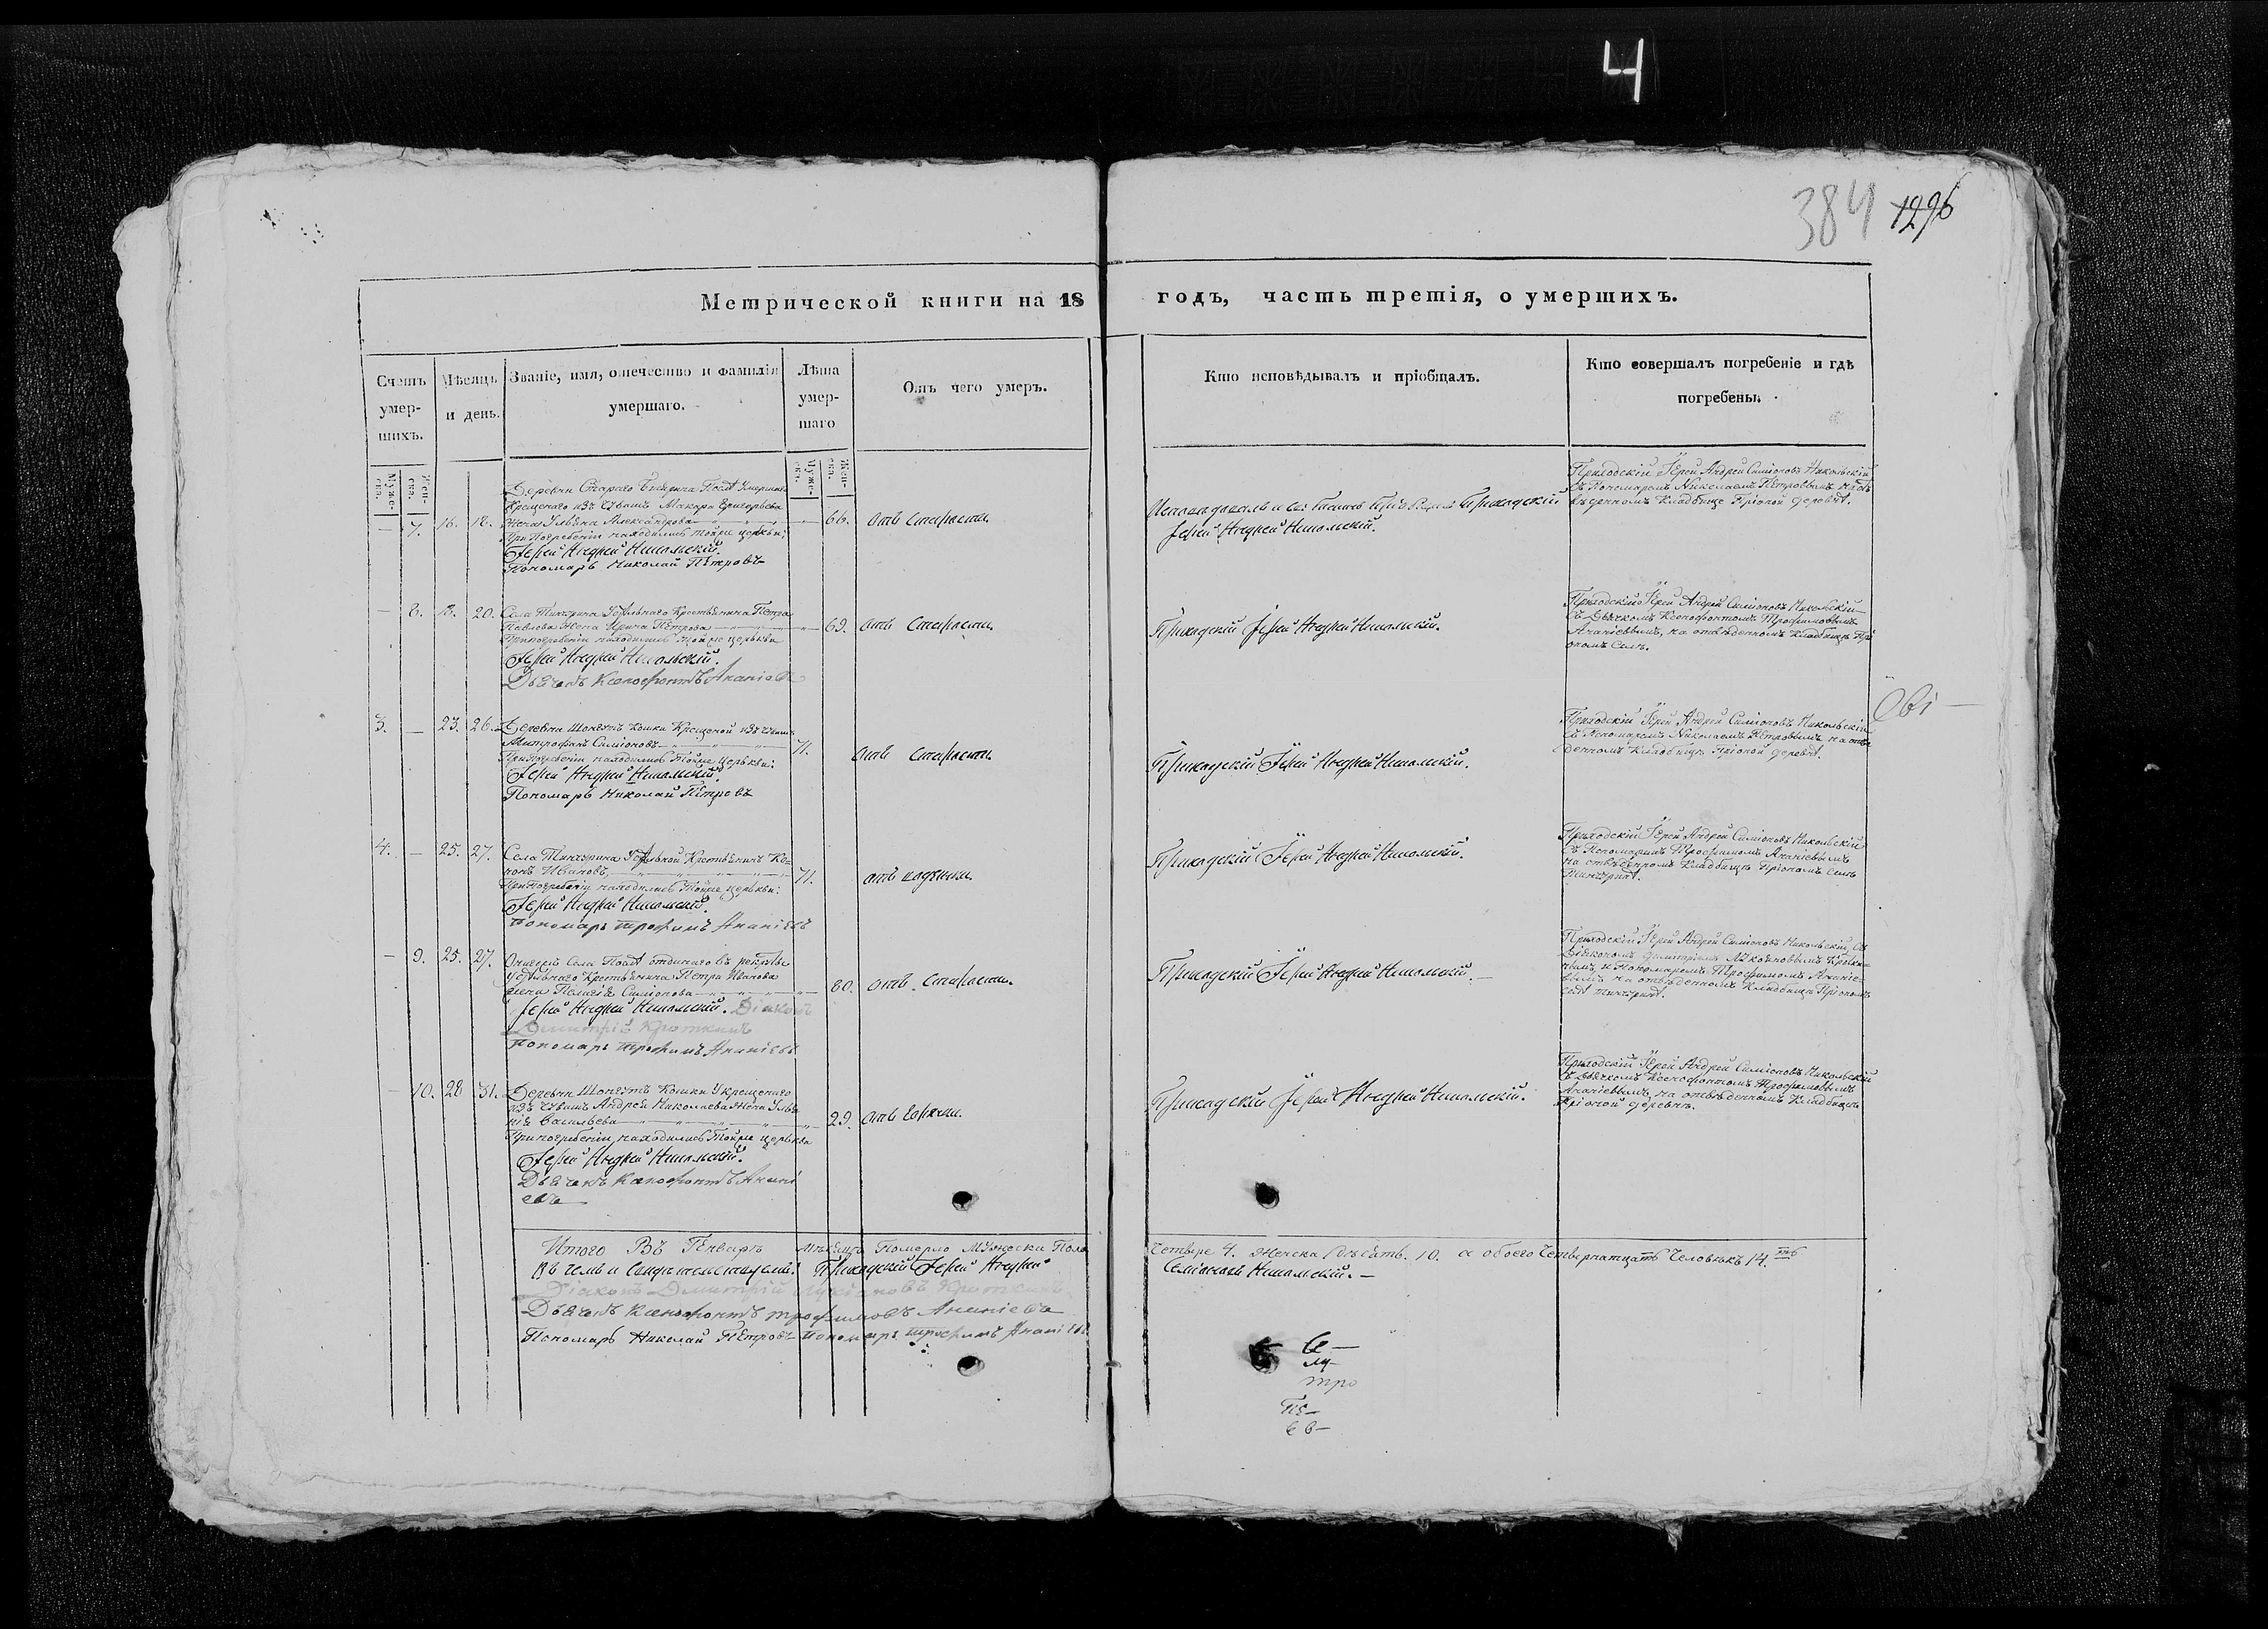 4
384 1296
Метрической книги на 18 годъ, часть третія, о умершихъ.
Счетъ умер-шихъ.
Мѣсяцъ и день.
Званіе, имя, отечество и фамилія умершаго.
Лѣта умер-шаго
Отъ чего умеръ.
Кто исповѣдывалъ и пріобщалъ.
Кто совершалъ погребеніе и гдѣ погребены.
Муже-ска.
Жен-ска.
Муже-ска.
Жен-ска.
— 7. 16. 18.
Деревни Стараго
Крещенаго изъ Чувашъ Макара Григорьева
Жена Ульяна Александрова — 66.
При Погребеніи находились тойже церкви:
Іерей Андрей Никольскій.
Пономарь Николай Петровъ
отъ старости.
Приходскій
Іерей Андрей Никольскій.
Приходскій Іерей Андрей Симіоновъ Никольскій
съ Пономаремъ Николаемъ Петровымъ на отвѣ
денномъ Кладбище Пріоной деревнѣ.
— 8. 18. 20.
Села Тинчурина Удѣльнаго Крестьянина Петра
Павлова Жена Ирина Петрова — 69.
При погребеніи находились тойже церкви
Іерей Андрей Никольскій.
Дьячекъ Ксенофонтъ Ананіевъ
отъ старости.
Приходскій Іерей Андрей Никольскій.
Приходскій Іерей Андрей Симіоновъ Никольскій
съ Дьячкомъ Ксенофонтомъ Трофимовымъ
Ананіевымъ, на отвѣденномъ Кладбищѣ При
ономъ Селѣ.
3. — 23. 26.
Деревни Кошки Крещеной изъ Чувашъ
Митрофанъ Симіоновъ — 71.
При погребеніи находились Тойже церкви:
Іерей Андрей Никольскій.
Пономарь Николай Петровъ
отъ старости.
Приходскій Іерей Андрей Никольскій.
Приходскій Іерей Андрей Симіоновъ Никольскій
съ Пономаремъ Николаемъ Петровымъ на отвѣ
денномъ Кладбищѣ Пріоной деревнѣ.
4. — 25. 27.
Села Тинчурина Удѣльной Крестьянинъ Ко-
нонъ Ивановъ, — 71.
При Погребеніи находились Тойже церкви:
Іерей Андрей Никольскій.
Пономарь Трофимъ Ананіевъ
отъ
Приходскій Іерей Андрей Никольскій.
Приходскій Іерей Андрей Симіоновъ Никольскій
съ Пономаримъ Трофимомъ Ананіевымъ
на отвѣденномъ Кладбищѣ Пріономъ селѣ
Тинчуринѣ.
— 9. 25. 27.
Села отдинаго въ рекруты
Удѣльнаго Крестьянина Петра Иванова
жена Пелагія Симіонова — 80.
Іерей Андрей Никольскій. Діаконъ
Димитрій Кроткинъ
Пономарь Трофимъ Ананіевъ
отъ старости.
Приходскій Іерей Андрей Никольскій. —
Приходскій Іерей Андрей Симіоновъ Никольскій, Съ
Діякономъ Димитріемъ
и Пономаремъ Трофимомъ Ананіе-
вымъ на отвѣденномъ Кладбищѣ Пріономъ
селѣ Тинчуринѣ.
— 10. 28 31.
Деревни Кошки Крещенаго
изъ Чувашъ Андрея Николаева Жена Улья
нія Васильева — 29.
При погребеніи находились Тойже церкви
Іерей Андрей Никольскій.
Дьячекъ Ксенофонтъ Анані
евъ
отъ горячки.
Приходскій Іерей Андрей Никольскій.
Приходскій Іерей Андрей Симіоновъ Никольскій
съ Дьячкомъ Ксенофонтомъ Трофимовымъ
Ананіевымъ, на отвѣденномъ Кладбищѣ
Пріоной деревнѣ.
Итого Въ Генварѣ мѣсяцѣ Померло Мужеска Пола Четыре 4. Женска Дѣсять. 10. а обоего Четырнатцать Человѣкъ 14.
Въ чемъ и Свидѣтельствуемъ: Приходскій Іерей Андрей Семіоновъ Никольскій. —
Діаконъ Димитрій Кроткинъ
Дьячекъ Ксенофонтъ Трофимовъ Ананіевъ
Пономарь Николай Петровъ Пономарь Трофимъ Ананіевъ
тро